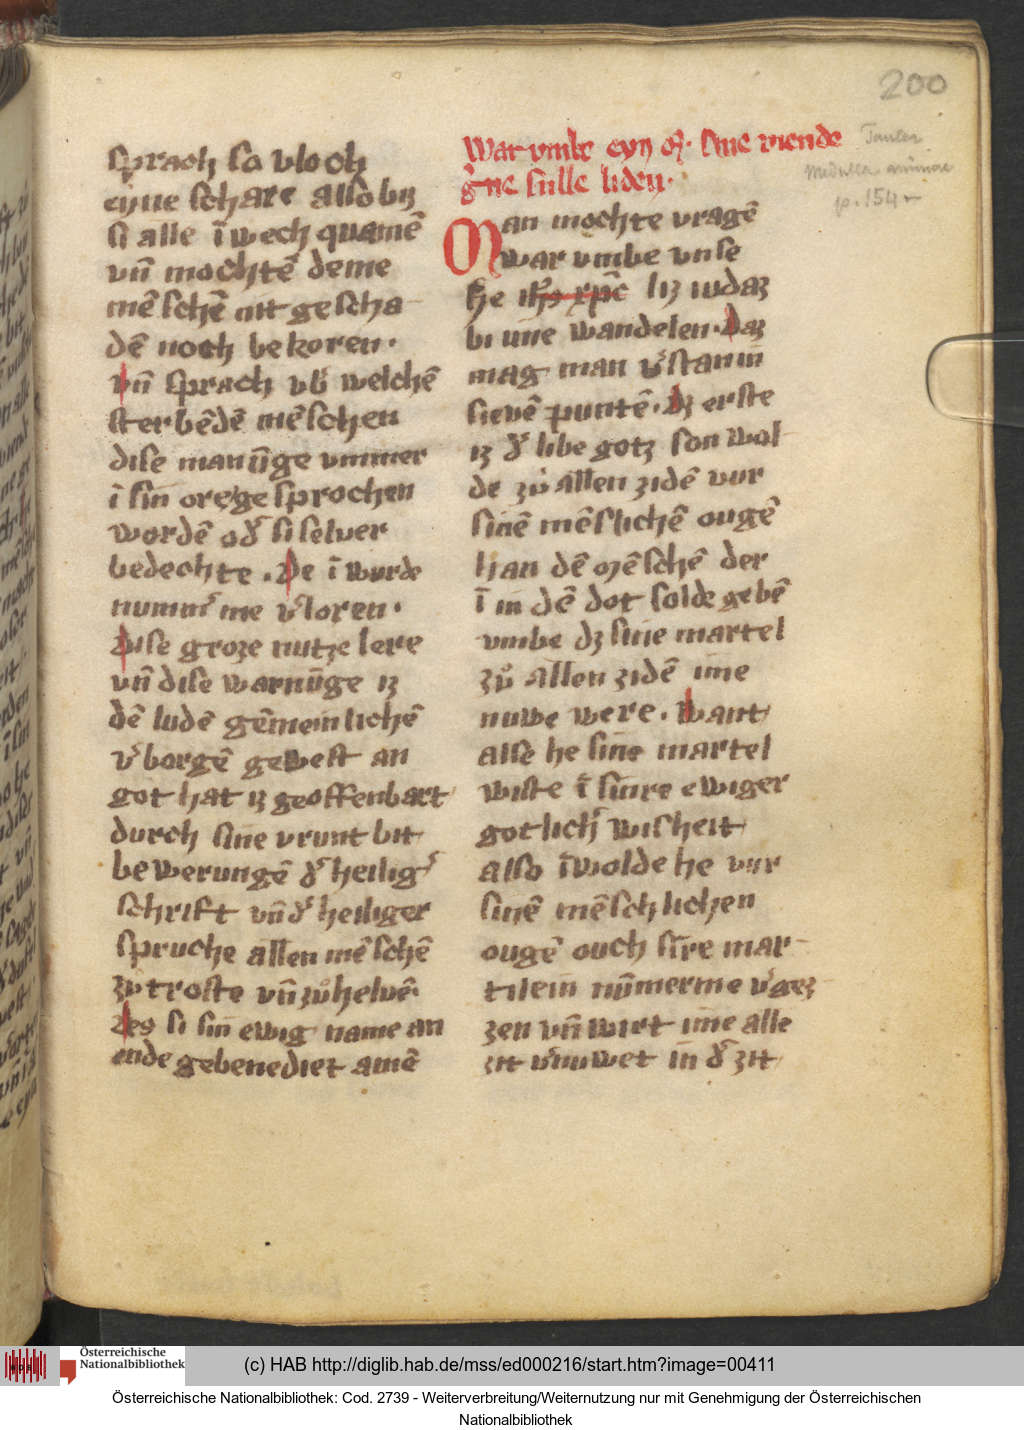 200
sprach so vloch
eyne schare also biz
si alle ī wech quamē
vn̄ mochtē deme
mēschē nit gescha
dē noch bekoren.
vn̄ sprach vb̓ welchē
sterbēdē mēschen
dise manūge vmmer
ī sin ore gesprochen
wordē od̓ si selver
bedechte. De ī wurde
nummͤ me v̓loren.
Dise groze nutze lere
vn̄ dise warnūge iz
dē ludē gēmeinlichē
v̓borgē gewest an
got hat iz geoffenbart
durch sine vrunt bit
bewerungē d̓ heilig̓
schrift vn̄ d̓ heiliger
spruche allen mēschē
zů troste vn̄ zů helvē.
Des si sin ewig name an
ende gebenediet amē
War vmbe eyn m̄. sine viende
g̓ne sulle liden.
Man mochte vragē
war vmbe vnse
he ih̄s xp̄c liz iudaz
bi ime wandelen. Daz
mag man v̓stan in
sievē puntē. Dz erste
iz d̓ libe gotz son wol
de zů allen zidē vur
sinē mēslichē ougē
han dē mēschē der
ī in dē dot solde gebē
vmbe dz sine martel
zů allen zidē ime
nuwe were. Want
alse he sine martel
wiste ī sinre ewiger
gotlich̓ wisheit
also ī wolde he vur
sinē mēschlichen
ougē ouch sīre mar
tilein nūmerme v̓gez
zen vn̄ wirt ime alle
zit v̓nuwet in d̓ zit
Tauler
Medulla animae
p. 154
Österreichische
Nationalbibliothek
(c) HAB http://diglib.hab.de/mss/ed000216/start.htm?image=00411
Österreichische Nationalbibliothek: Cod. 2739 - Weiterverbreitung/Weiternutzung nur mit Genehmigung der Österreichischen
Nationalbibliothek